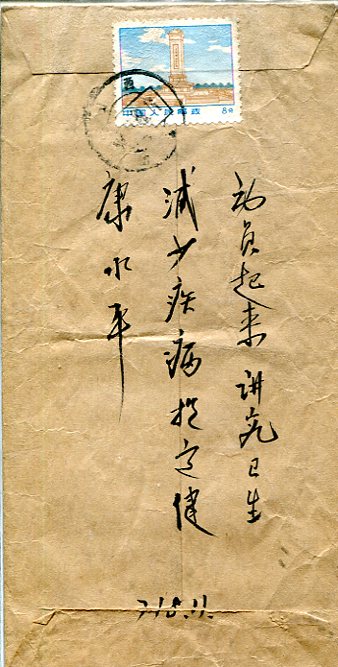 中国人民邮政
8分
动员起来 讲究卫生
减少疾病 提高健
康水平